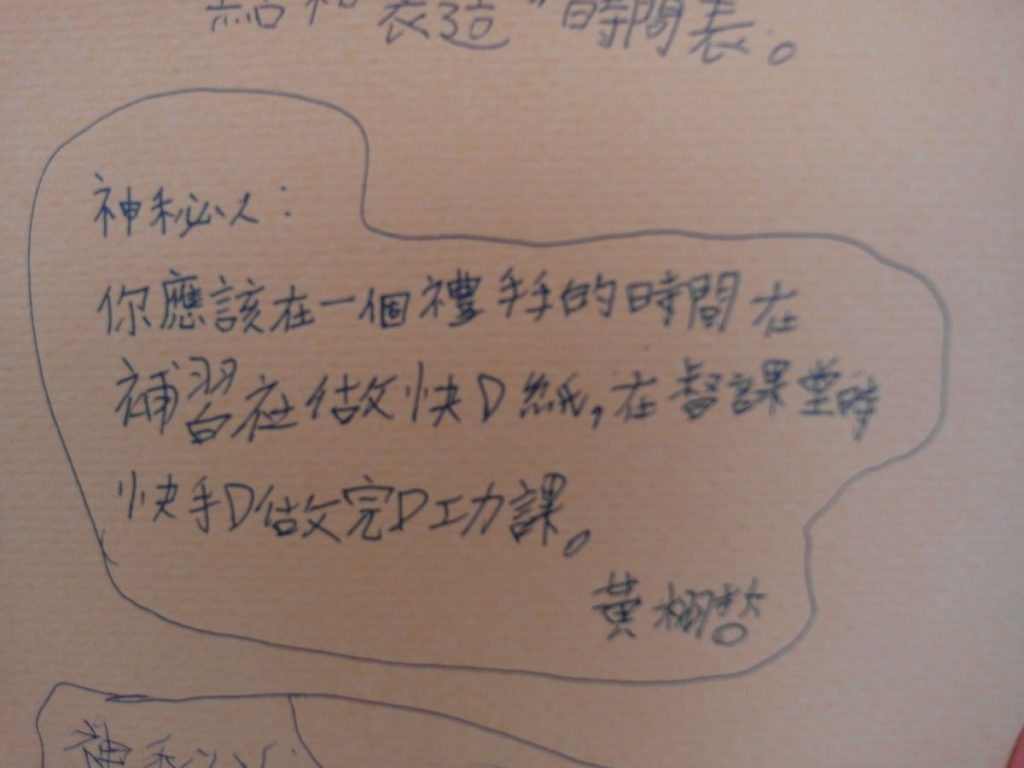 給和"表造"時間表。
神秘人：
你應該在一個禮手的時間在
補習社做快D紙,在督課堂時
快手D做完D功課。
黃栩哲
神秘人：